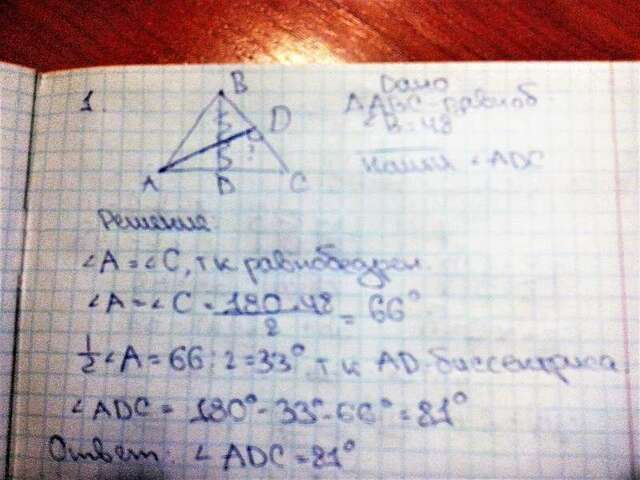 1.
B
D
A
D
C
Дано
△ABC равноб
∠B=48
Найти ∠ADC
Решение
∠A=∠C, т к равнобедрен.
∠A=∠C = 180-48 / 2 = 66°
1/2 ∠A = 66:2=33°, т. к AD-биссектриса
∠ADC = 180°-33°-66°=81°
Ответ: ∠ADC=81°